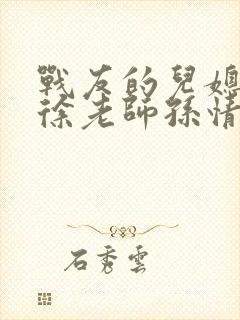 戰友的兒媳
徐老師孫情
石秀雲